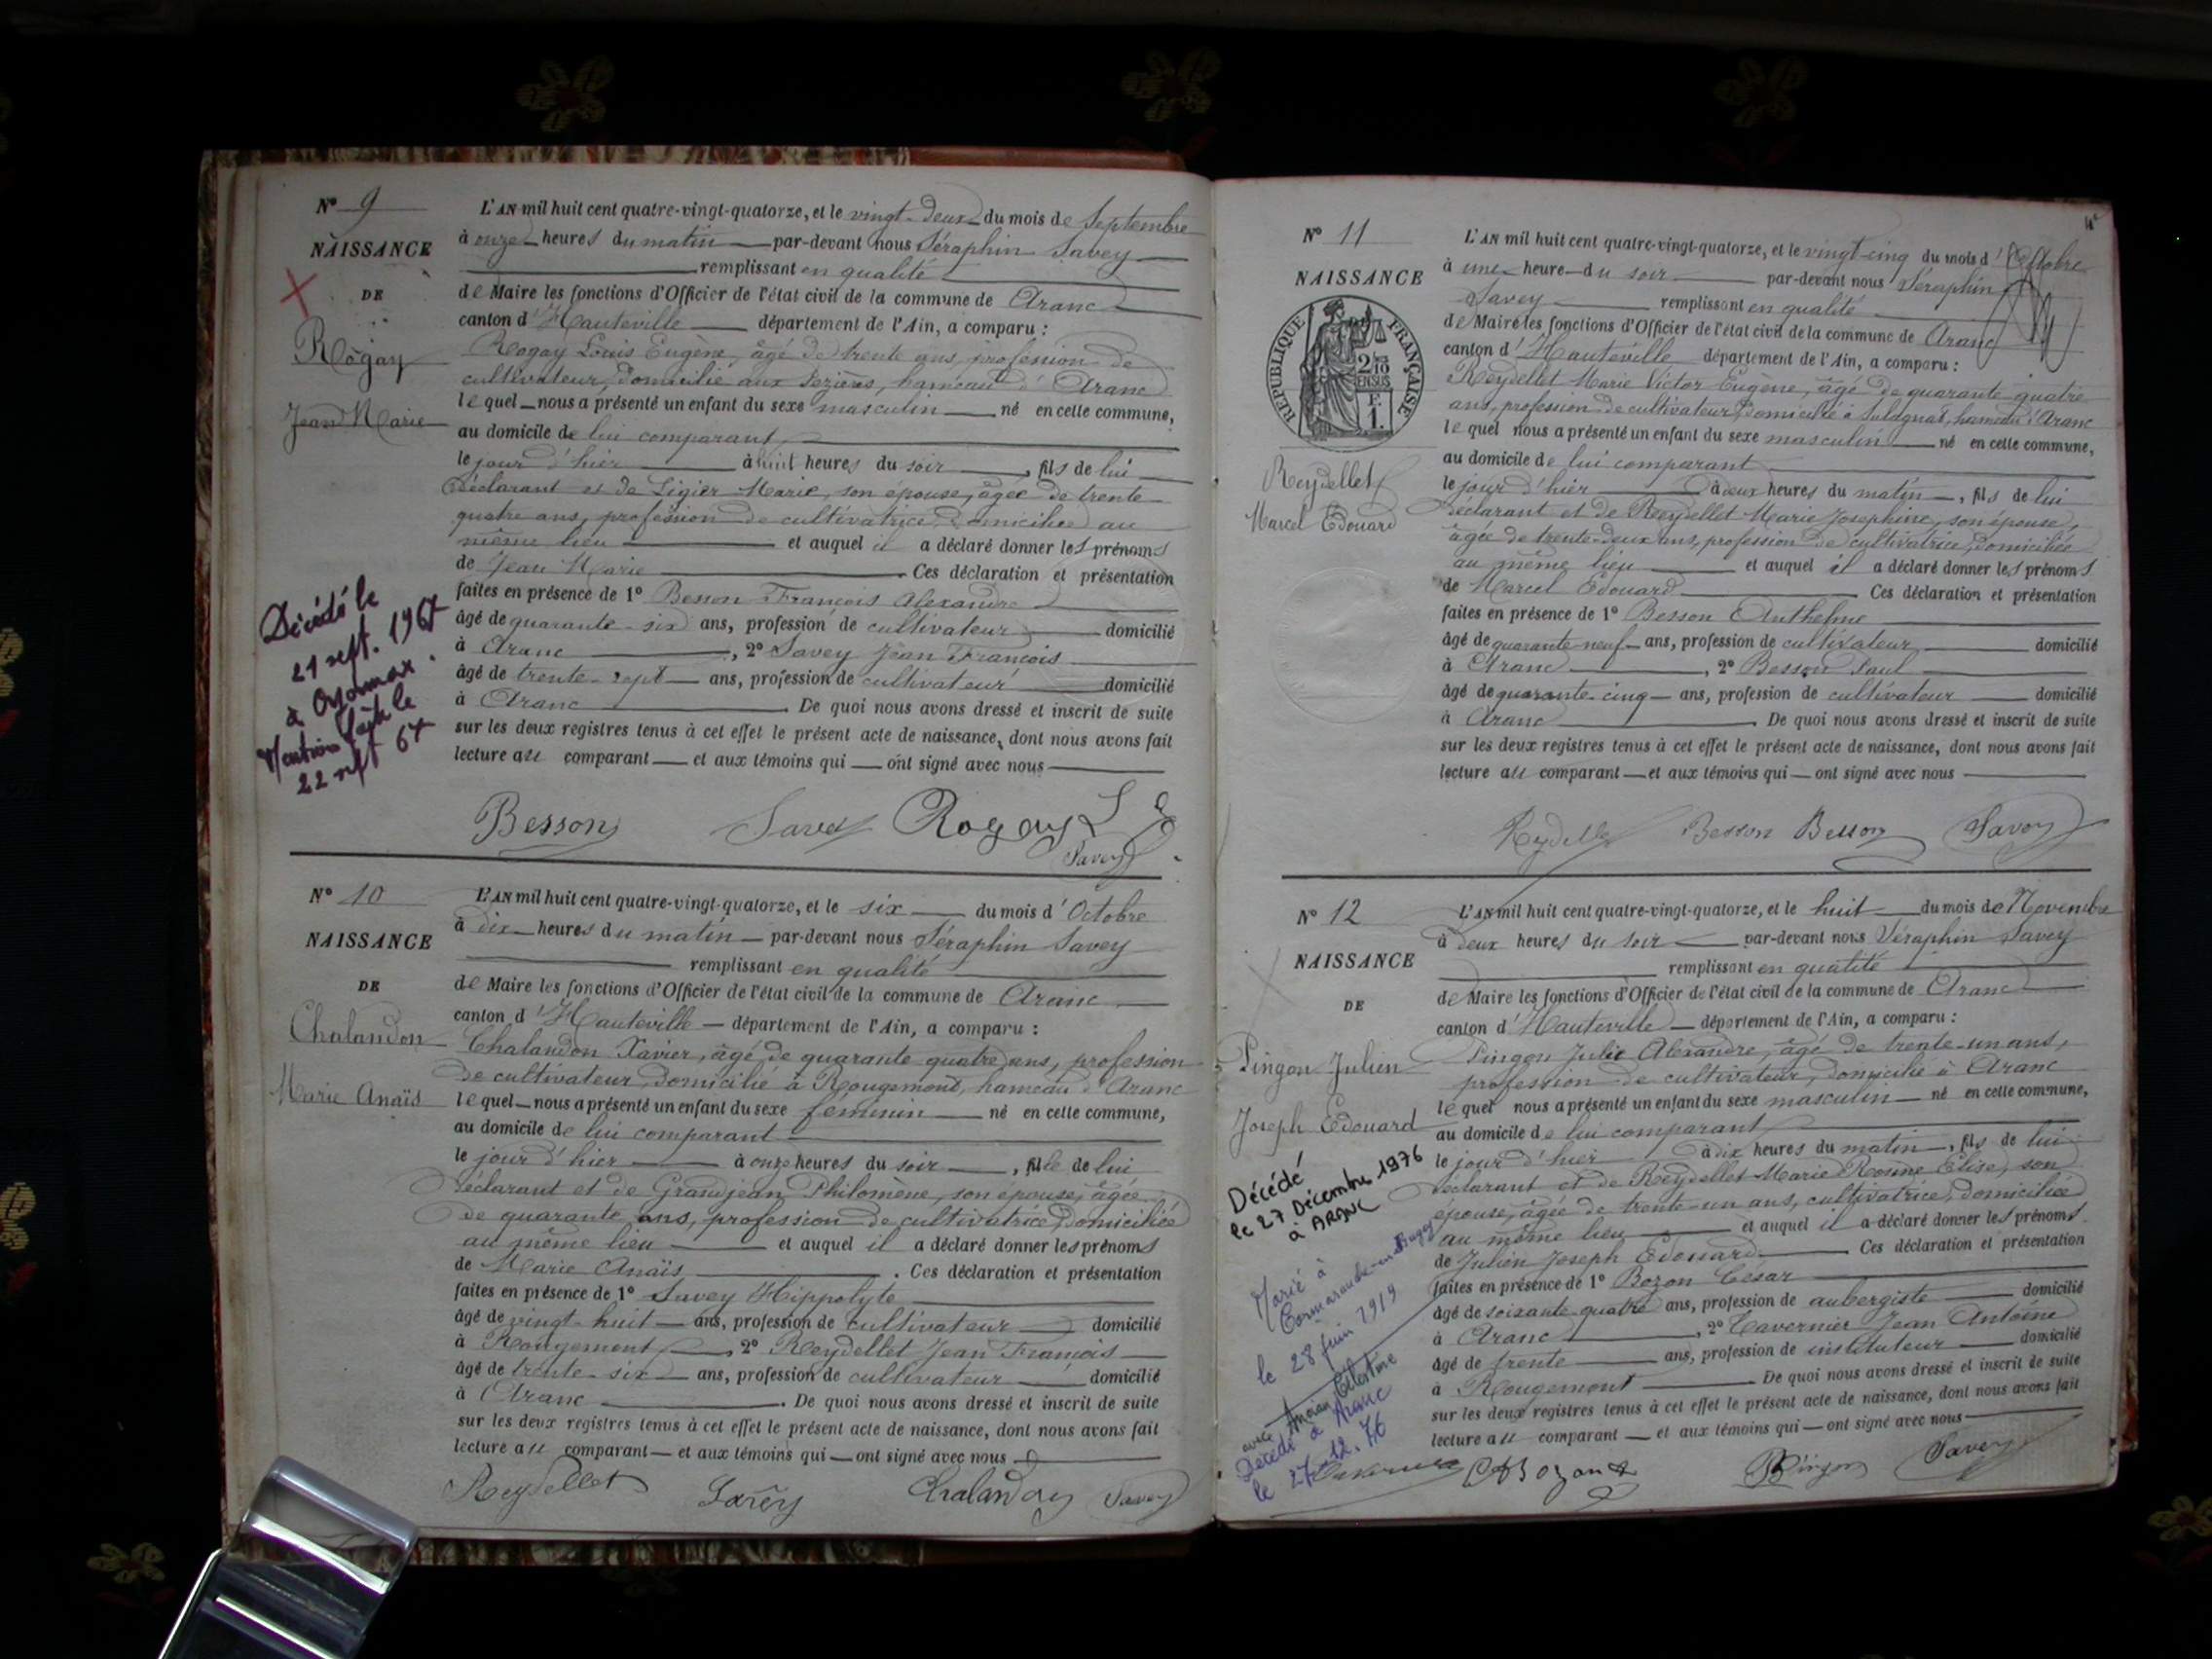 Nº 9
NAISSANCE
DE
Rogay
Jean Marie
Décédé le
21 sept. 1967
à Oyonnax.
Mention faite le
22 sept 67
L'AN mil huit cent quatre-vingt-quatorze, et le vingt-deux du mois de Septembre
à onze heures du matin par-devant nous Séraphin Savey
remplissant en qualité
de Maire les fonctions d'Officier de l'état civil de la commune de Aranc
canton d'Hauteville département de l'Ain, a comparu :
Rogay Louis Eugène, âgé de trente ans, profession de
cultivateur, domicilié aux Pezières, hameau d'Aranc
lequel nous a présenté un enfant du sexe masculin né en cette commune,
au domicile de lui comparant,
le jour d'hier à huit heures du soir, fils de lui
déclarant et de Ligier Marie, son épouse, âgée de trente
quatre ans, profession de cultivatrice, domiciliée au
même lieu et auquel il a déclaré donner les prénoms
de Jean Marie. Ces déclaration et présentation
faites en présence de 1º Besson François Alexandre
âgé de quarante-six ans, profession de cultivateur domicilié
à Aranc, 2º Savey Jean François
âgé de trente-sept ans, profession de cultivateur domicilié
à Aranc. De quoi nous avons dressé et inscrit de suite
sur les deux registres tenus à cet effet le présent acte de naissance, dont nous avons fait
lecture au comparant et aux témoins qui ont signé avec nous
Besson Savey Rogay L E
Savey
Nº 10
NAISSANCE
DE
Chalandon
Marie Anaïs
L'AN mil huit cent quatre-vingt-quatorze, et le six du mois d'Octobre
à dix heures du matin par-devant nous Séraphin Savey
remplissant en qualité
de Maire les fonctions d'Officier de l'état civil de la commune de Aranc
canton d'Hauteville département de l'Ain, a comparu :
Chalandon Xavier, âgé de quarante quatre ans, profession
de cultivateur, domicilié à Rougemont, hameau d'Aranc
lequel nous a présenté un enfant du sexe féminin né en cette commune,
au domicile de lui comparant
le jour d'hier à onze heures du soir, fille de lui
déclarant et de Grandjean Philomène, son épouse, âgée
de quarante ans, profession de cultivatrice, domiciliée
au même lieu et auquel il a déclaré donner les prénoms
de Marie Anaïs. Ces déclaration et présentation
faites en présence de 1º Savey Hippolyte
âgé de vingt-huit ans, profession de cultivateur domicilié
à Rougemont, 2º Reydellet Jean François
âgé de trente-six ans, profession de cultivateur domicilié
à Aranc. De quoi nous avons dressé et inscrit de suite
sur les deux registres tenus à cet effet le présent acte de naissance, dont nous avons fait
lecture au comparant et aux témoins qui ont signé avec nous
Reydellet Savey Chalandon Savey
Nº 11
NAISSANCE
RÉPUBLIQUE FRANÇAISE
2/10 EN SUS
F. 1.
Reydellet
Marcel Edouard
L'AN mil huit cent quatre-vingt-quatorze, et le vingt-cinq du mois d'Octobre
à une heure du soir par-devant nous Séraphin
Savey remplissant en qualité
de Maire les fonctions d'Officier de l'état civil de la commune de Aranc
canton d'Hauteville département de l'Ain, a comparu :
Reydellet Marie Victor Eugène, âgé de quarante quatre
ans, profession de cultivateur, domicilié à Sulagnat, hameau d'Aranc
lequel nous a présenté un enfant du sexe masculin né en cette commune,
au domicile de lui comparant
le jour d'hier à deux heures du matin, fils de lui
déclarant et de Reydellet Marie Josephine, son épouse,
âgée de trente-deux ans, profession de cultivatrice, domiciliée
au même lieu et auquel il a déclaré donner les prénoms
de Marcel Edouard Ces déclaration et présentation
faites en présence de 1º Besson Anthelme
âgé de quarante-neuf ans, profession de cultivateur domicilié
à Aranc, 2º Besson Paul
âgé de quarante-cinq ans, profession de cultivateur domicilié
à Aranc. De quoi nous avons dressé et inscrit de suite
sur les deux registres tenus à cet effet le présent acte de naissance, dont nous avons fait
lecture au comparant et aux témoins qui ont signé avec nous
Reydelle Besson Besson Savey
Nº 12
NAISSANCE
DE
Pingon Julien
Joseph Edouard
Décédé
le 27 Décembre 1976
à ARANC
Marié à
Cormaranche-en-Bugey
le 28 juin 1919
avec Ancian Célestine
Décédé à Aranc
le 27.12.76
L'AN mil huit cent quatre-vingt-quatorze, et le huit du mois de Novembre
à deux heures du soir par-devant nous Séraphin Savey
remplissant en qualité
de Maire les fonctions d'Officier de l'état civil de la commune de Aranc
canton d'Hauteville département de l'Ain, a comparu :
Pingon Julie Alexandre, âgé de trente-un ans,
profession de cultivateur, domicilié à Aranc
lequel nous a présenté un enfant du sexe masculin né en cette commune,
au domicile de lui comparant
le jour d'hier à dix heures du matin, fils de lui
déclarant et de Reydellet Marie Rosine Elise, son
épouse, âgée de trente-un ans, cultivatrice, domiciliée
au même lieu et auquel il a déclaré donner les prénoms
de Julien Joseph Edouard. Ces déclaration et présentation
faites en présence de 1º Bozon César
âgé de soixante quatre ans, profession de aubergiste domicilié
à Aranc, 2º Tavernier Jean Antoine
âgé de trente ans, profession de instituteur domicilié
à Rougemont De quoi nous avons dressé et inscrit de suite
sur les deux registres tenus à cet effet le présent acte de naissance, dont nous avons fait
lecture au comparant et aux témoins qui ont signé avec nous
Tavernier Bozon Pingon Savey